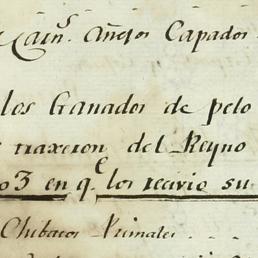 Cain^s. Añejos Capados
los Ganados de pelo
traxeron del Reyno
03 en q^e los recivio su
Chibatos Primales